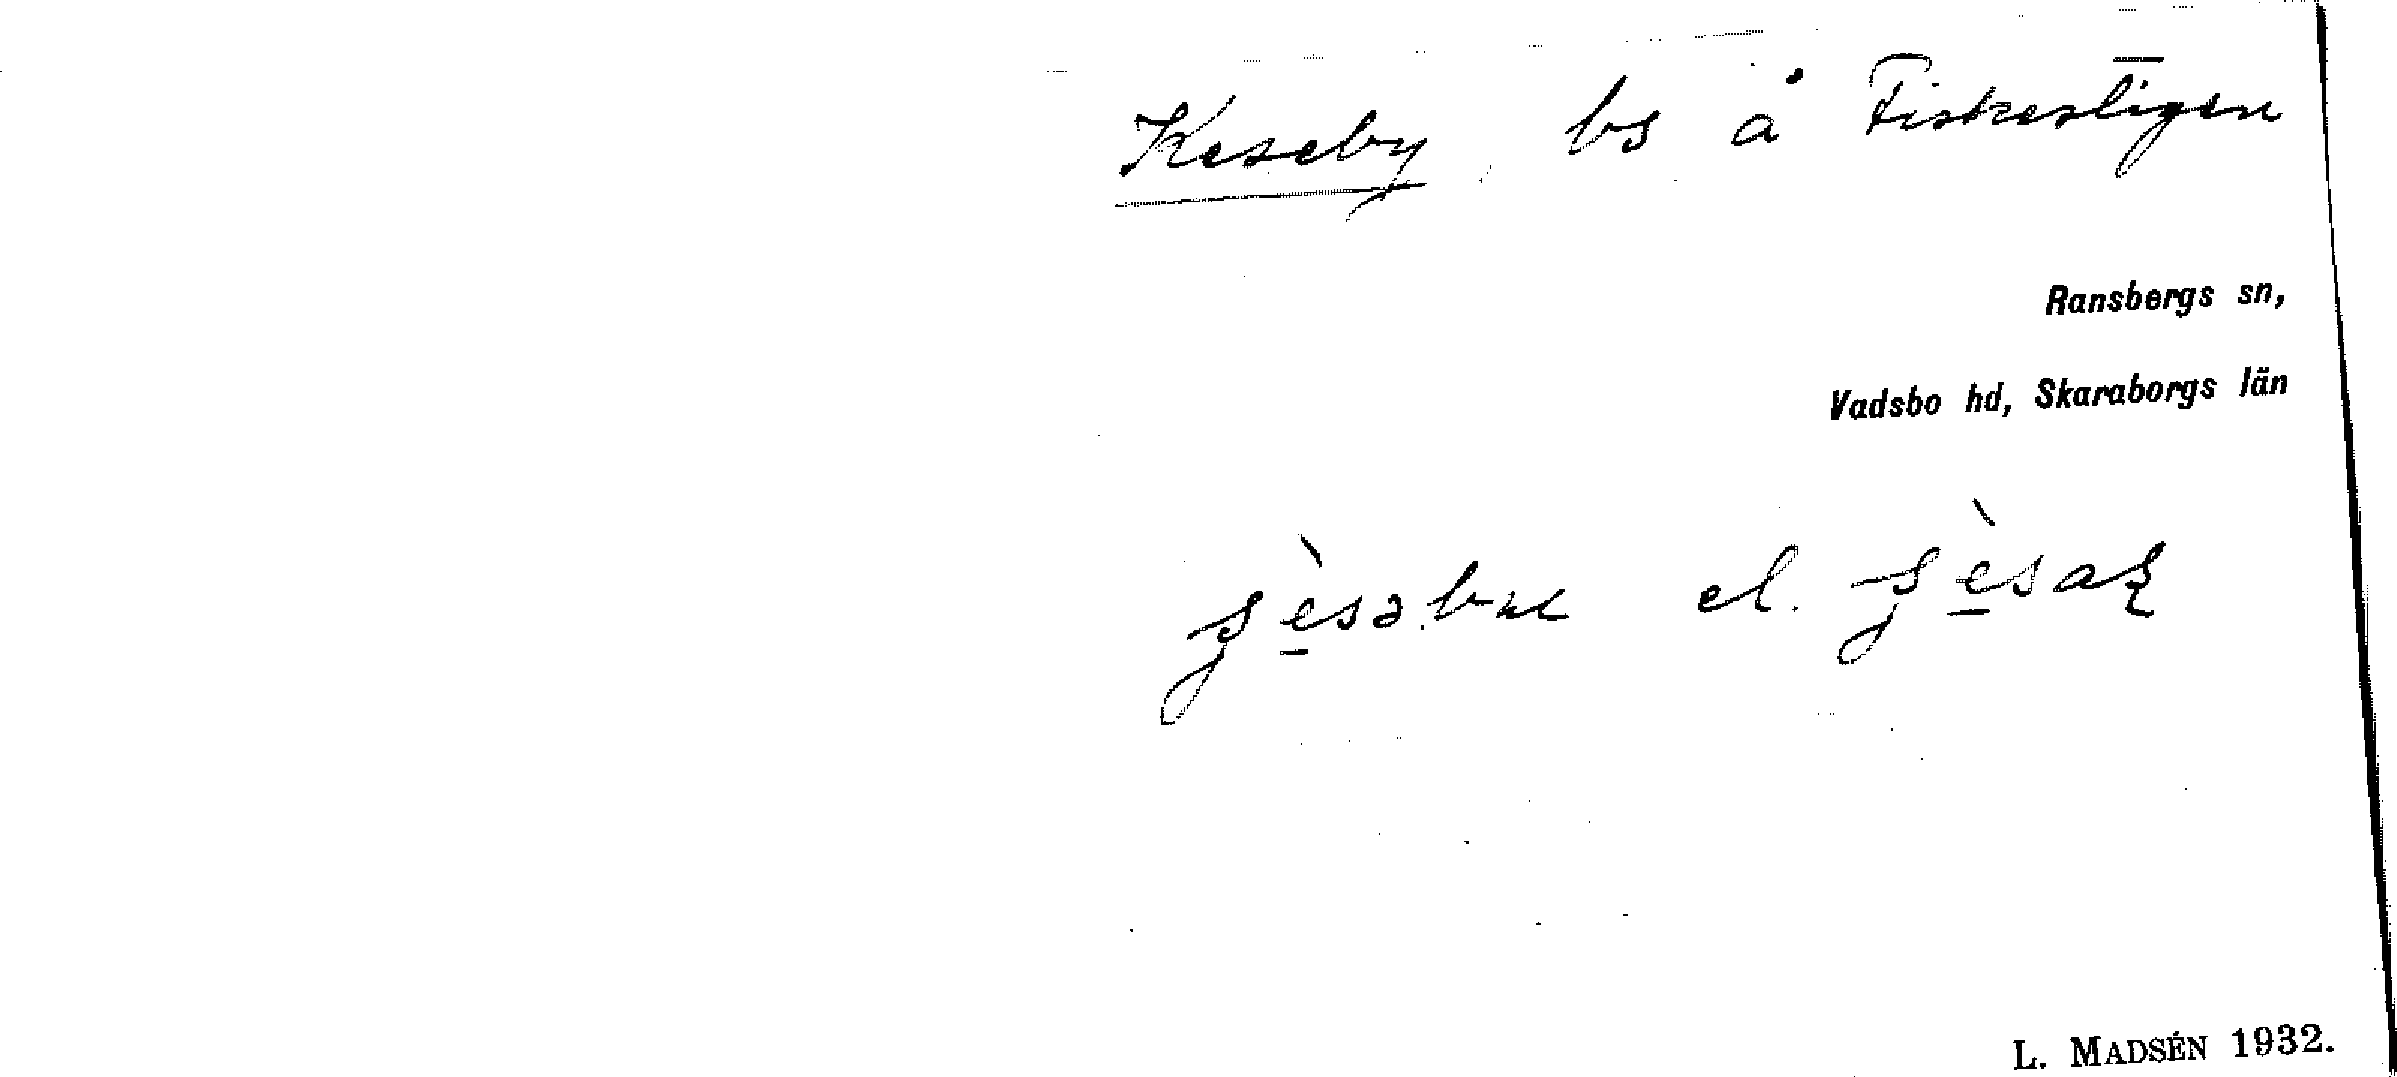 Keseby, bs å Fiskestigen
Ransbergs sn,
Vadsbo hd, Skaraborgs län
el.
L. MADSÉN 1932.